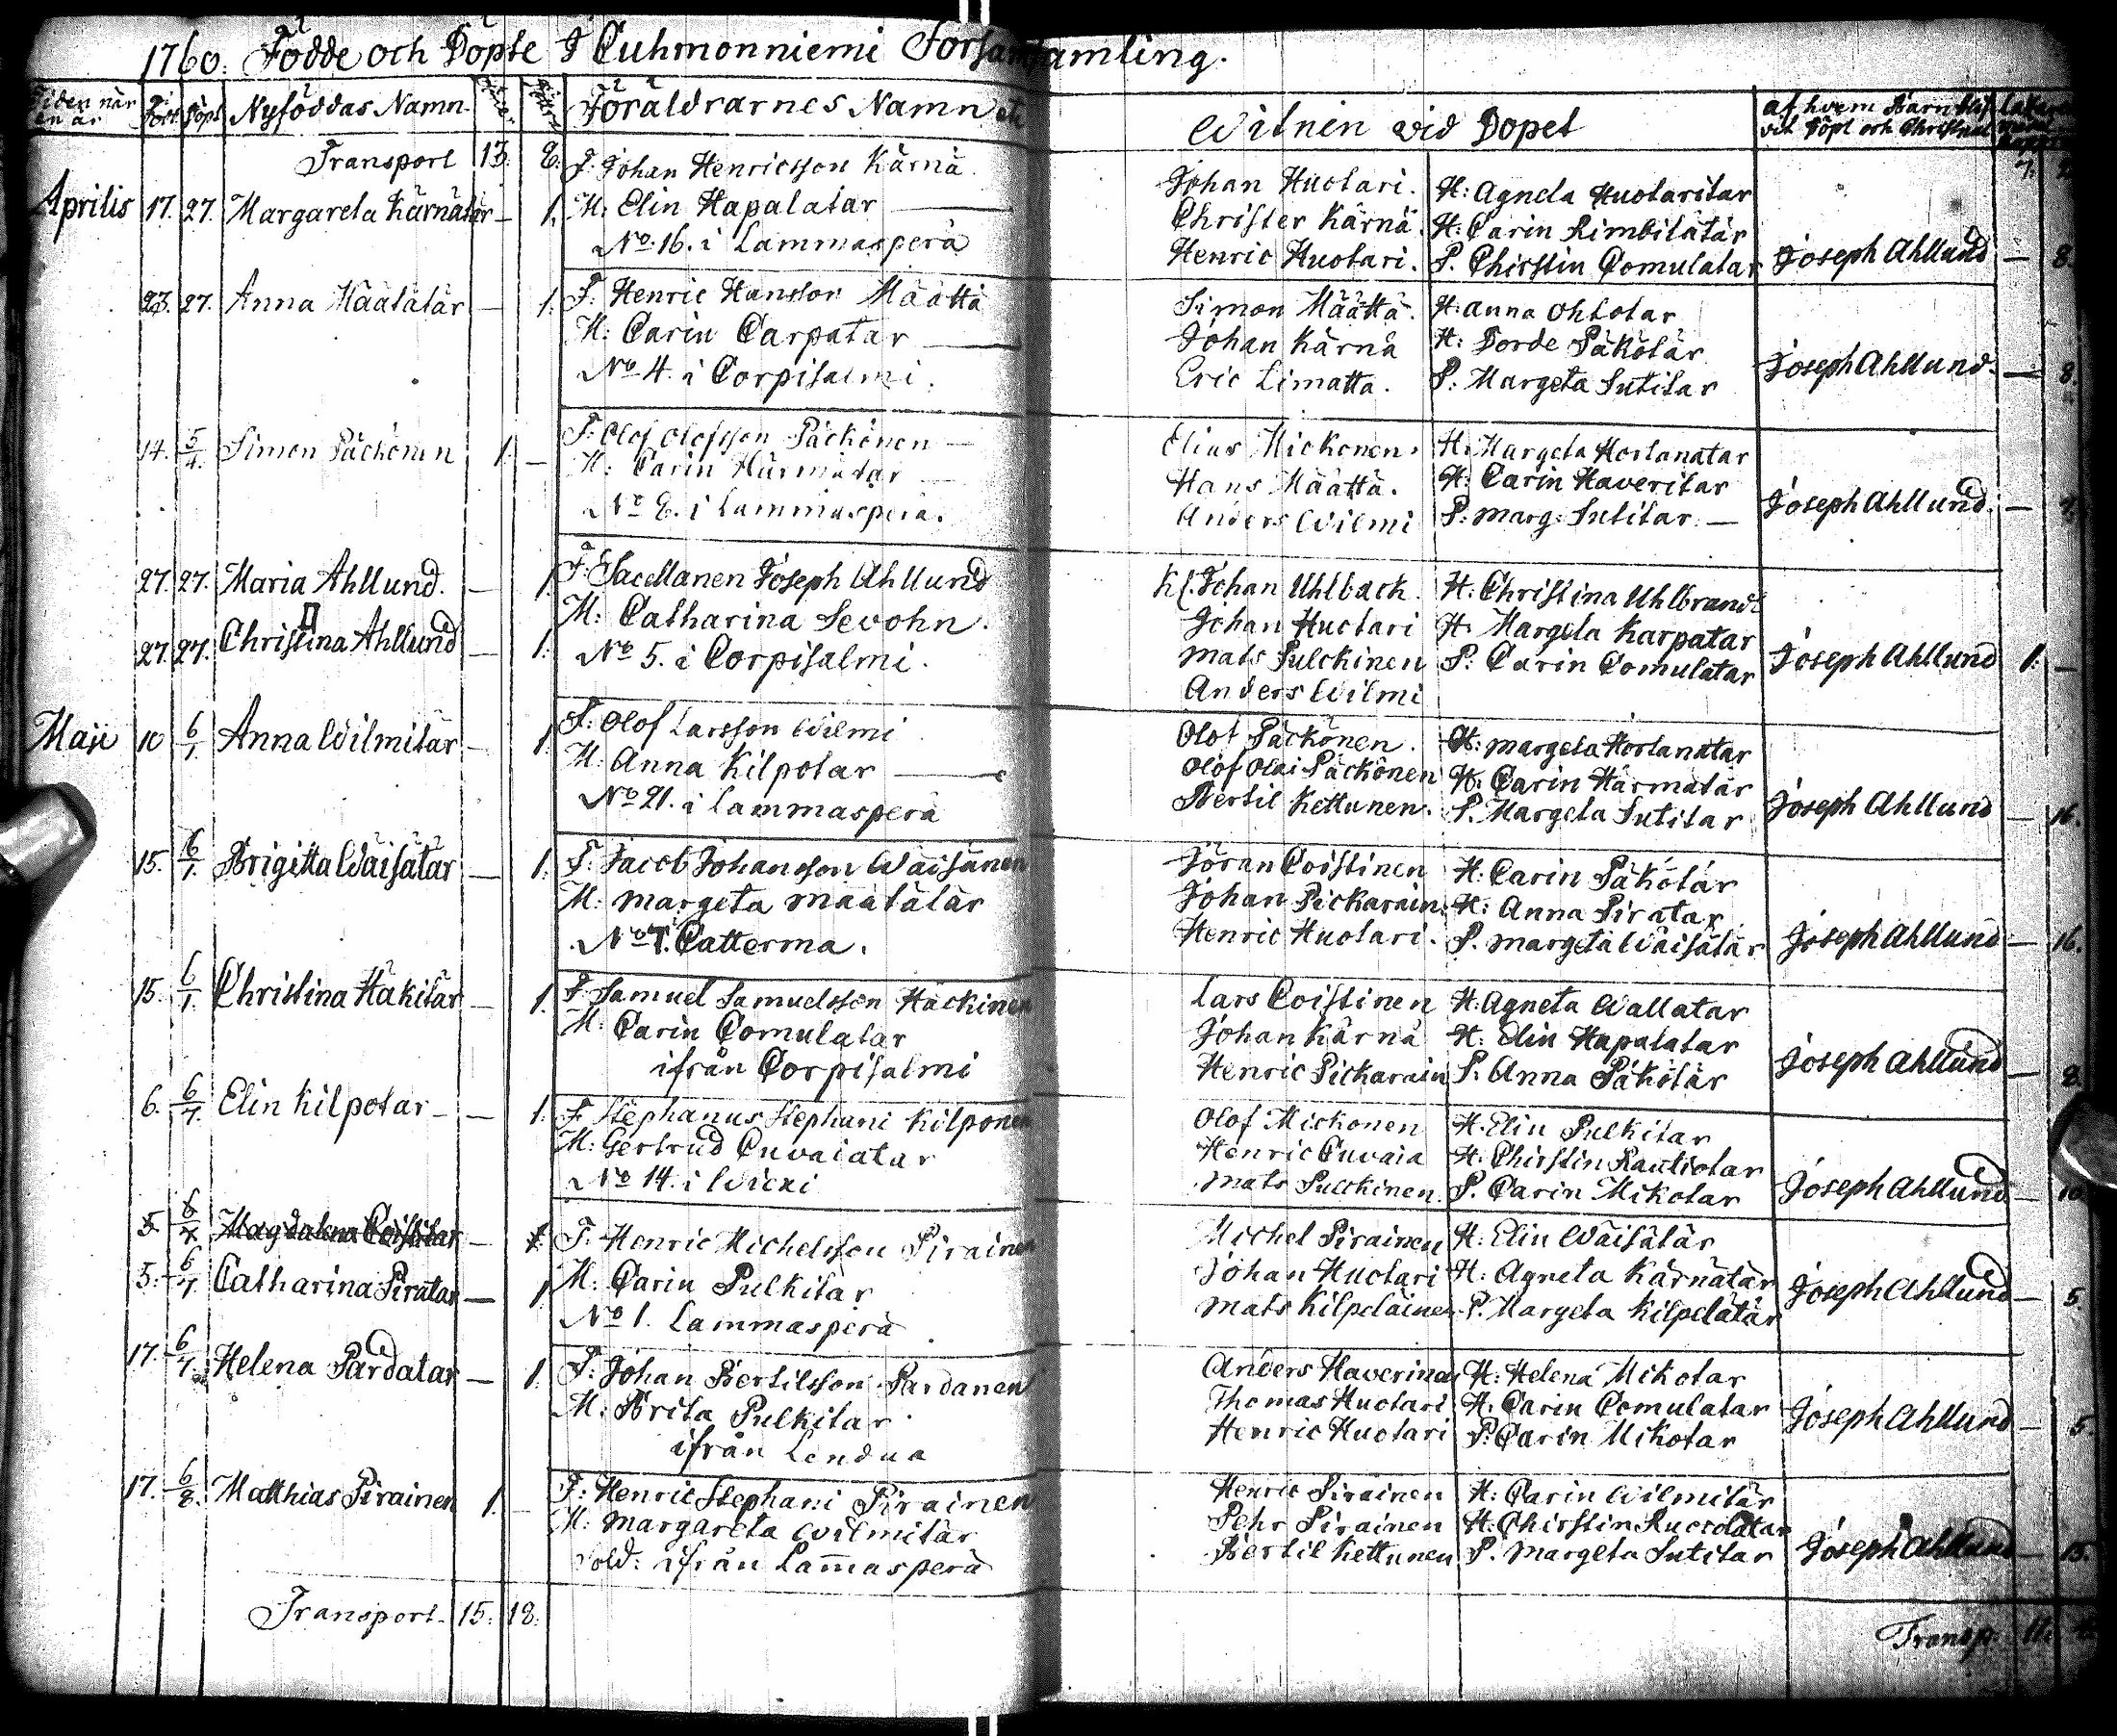 1760. Födde och Döpte I Cuhmonniemi Församsamling.
Tiden när Född Döpt Nyföddas Namn. Föräldrarnes Namn etc Witnen vid Dopet af hvem Barn blif
vit Döpt och Christnat
Transport 13. 8. F. Johan Henricsson Kärnä Johan Huotari. H: Agneta Huotaritar 7.
Aprilis 17. 27. Margareta Kärnätär — 1. M: Elin Hapalatar — Christer Kärnä. H: Carin Rimbilätär
No. 16. i Lammasperä Henric Huotari. P. Chirstin Comulatar Joseph Ahllund — 8.
23. 27. Anna Määtätär — 1. F: Henric Hansson Määttä Simon Määttä. H: anna Ohtotar
M: Carin Carpatar — Johan Kärnä H: Dorde Päkötär
No 4. i Corpisalmi. Eric Limatta. P: Margeta Sutitar Joseph Ahllund. — 8.
14. 5/4. Simon Päckönen 1. — F: Olof Olofsson Päckönen — Elias Mickonen. H: Margeta Horlanatar
M: Carin Härmätär — Hans Määttä. H: Carin Haveritar
No 8. i Lammasperä. Anders Wilmi P: Marg: Sutitar — Joseph Ahllund. —
27. 27. Maria Ahllund. — 1. F: Sacellanen Joseph Ahllund Kl. Johan Uhlback. H: Christina Uhlbrandt
M: Catharina Sevohn. Johan Huotari H: Margeta Karpatar
27. 27. Christina Ahllund — 1. No 5. i Corpisalmi. Mats Pulckinen P: Carin Comulatar Joseph Ahllund 1. —
Anders Wilmi
Maji 10 6/1. Anna Wilmitär — 1. F: Olof Larsson Wilmi Olof Päckönen. H: Margeta Horlanatar
M: Anna Kilpotar — Olof Olai Päckönen H: Carin Härmätär
No 21. i Lammasperä Bertil Kettunen. P. Margeta Sutitar Joseph Ahllund — 16.
15. 6/1. Brigitta Wäisätär — 1. F: Jacob Johansson Wäisänen Jöran Coistinen H: Carin Päkötär
M: Margeta Määtätär Johan Pickarain. H: Anna Piratar
No 7. Catterma. Henric Huotari. P. Margeta Wäisätär Joseph Ahllund — 16.
15. 6/1. Christina Häkitär — 1. F. Samuel Samuelsson Häckinen Lars Coistinen H: Agneta Wallatar
M: Carin Comulatar Johan Kärnä H: Elin Hapalatar
ifrån Corpisalmi Henric Pickarain P: Anna Päkötär Joseph Ahllund — 8.
6. 6/7. Elin Kilpotar — — 1. F. Stephanus Stephani Kilponen Olof Mickonen H. Elin Pulkitar
M: Gertrud Cuvaiatar Henric Cuvaia H: Chirstin Rautiotar
No 14. i Wieki Mats Pulckinen. P. Carin Mikotar Joseph Ahllund — 10.
5 6/7 Magdalena Coistitar — 1. F: Henric Michelsson Pirainen Michel Pirainen H: Elin Wäisätär
5. 6/7 Catharina Piratar — 1 M: Carin Pulkitar Johan Huotari H: Agneta Kärnätär
No 1. Lammasperä Mats Kilpeläinen P. Margeta Kilpelätär Joseph Ahllund — 5.
17. 6/7. Helena Pardatar — 1. F: Johan Bertilsson Pardanen Anders Haverinen H: Helena Mikotar
M: Brita Pulkitar Thomas Huotari H: Carin Comulatar
ifrån Lendua Henric Huotari P. Carin Mikotar Joseph Ahllund — 5.
17. 6/8. Matthias Pirainen 1. — F: Henric Stephani Pirainen Henric Pirainen H: Carin Wilmitär
M: Margareta Wilmitär Pehr Pirainen H: Chirstin
Sold: ifrån Lam̄asperä Bertil Kettunen P. Margeta Sutitar Joseph Ahllund — 15.
Transport. 15. 18. Transp. 11.